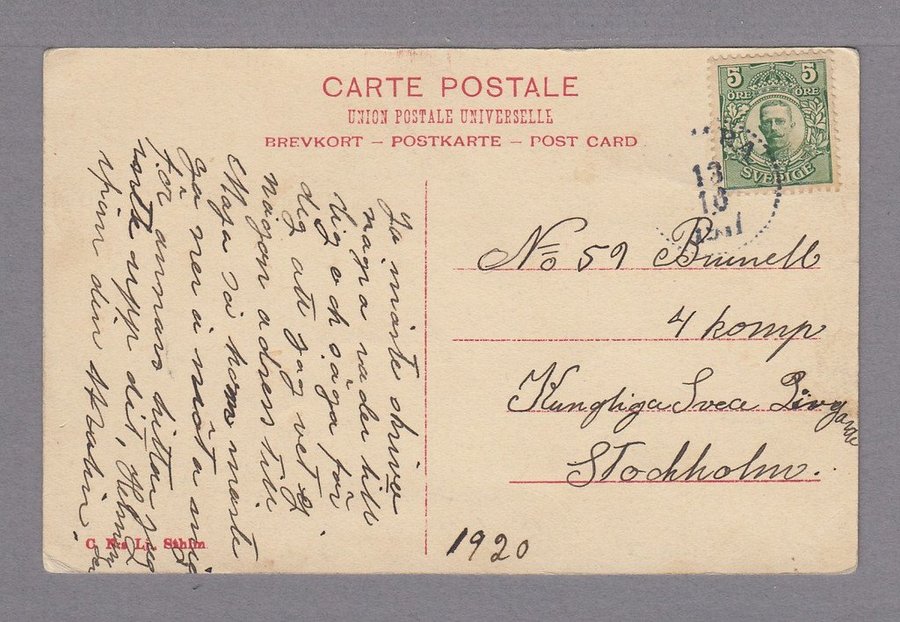 CARTE POSTALE
UNION POSTALE UNIVERSELLE
BREVKORT – POSTKARTE – POST CARD
5 5
ÖRE ÖRE
SVERIGE
13
10
No 59 Brunell
4 komp
Kungliga Svea Livgarde
Stockholm.
1920
Ja måste skriva
några rader till
dig och säga för
dig att jag vet ej
någon adress till
Maja så hon måste
gå ner å möta mig
för annars hittar jag
inte upp dit,
vän din
C. N:s Lj. Sthlm